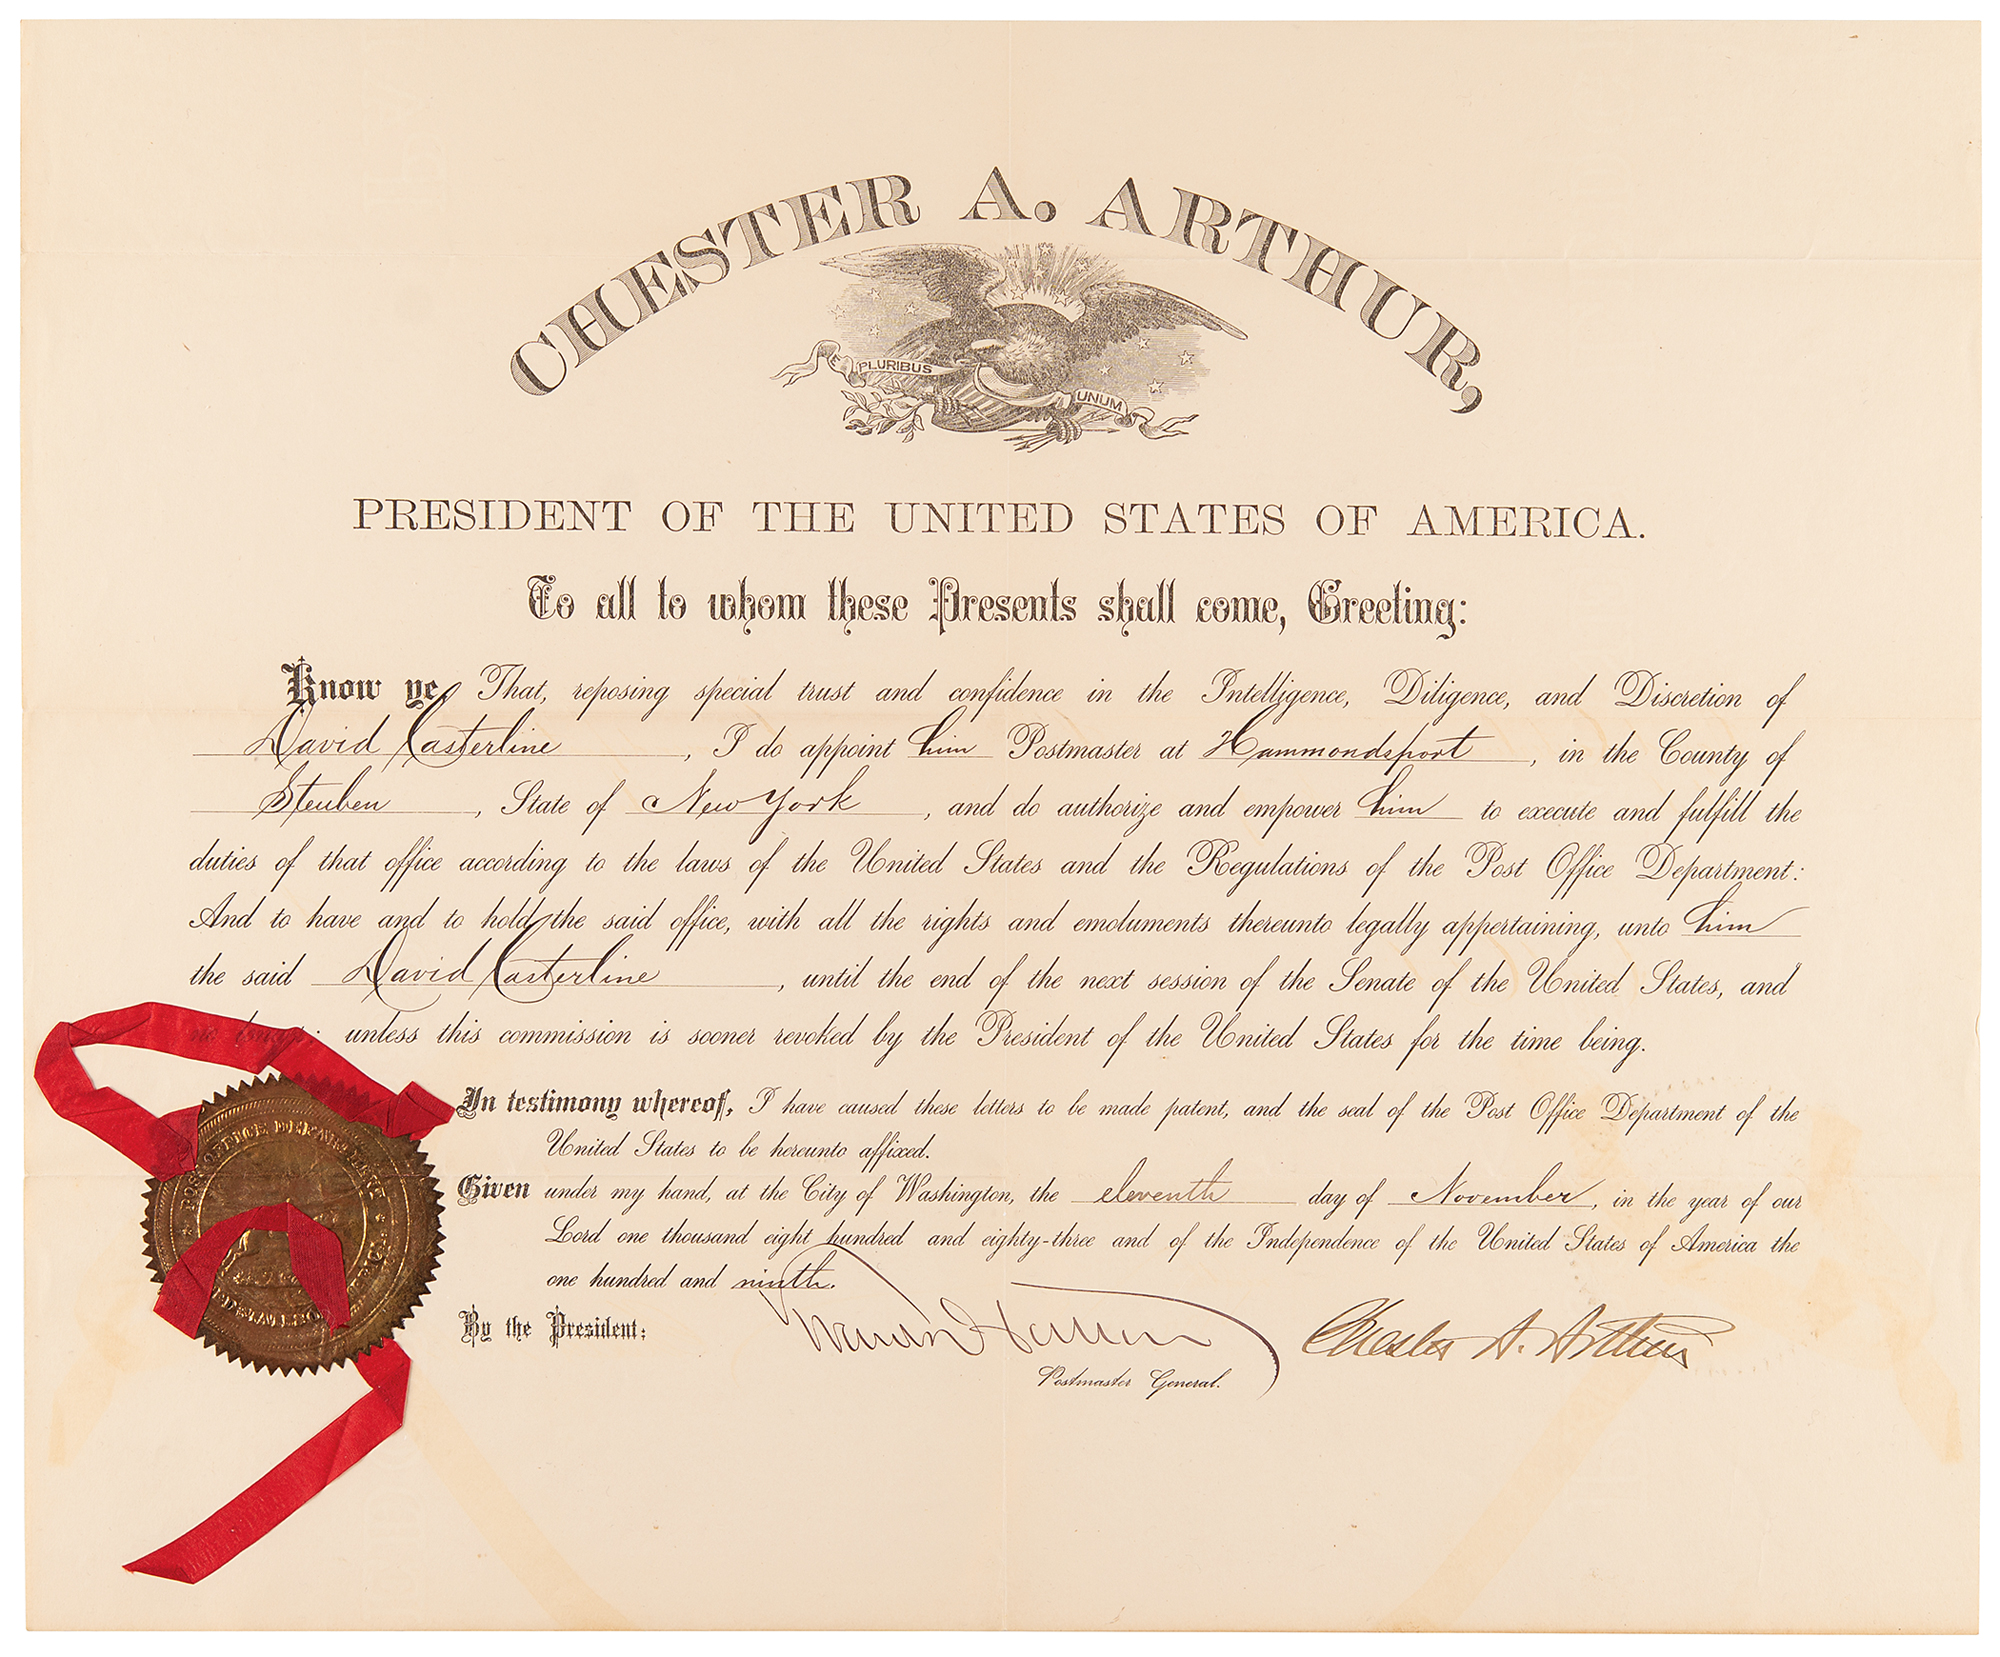 CHESTER A. ARTHUR,
E PLURIBUS UNUM
PRESIDENT OF THE UNITED STATES OF AMERICA.
To all to whom these Presents shall come, Greeting:
Know ye, That, reposing special trust and confidence in the Intelligence, Diligence, and Discretion of
David Casterline, I do appoint him Postmaster at Hammondsport, in the County of
Steuben, State of New York, and do authorize and empower him to execute and fulfill the
duties of that office according to the laws of the United States and the Regulations of the Post Office Department:
And to have and to hold the said office, with all the rights and emoluments thereunto legally appertaining, unto him
the said David Casterline, until the end of the next session of the Senate of the United States, and
no longer; unless this commission is sooner revoked by the President of the United States for the time being.
In testimony whereof, I have caused these letters to be made patent, and the seal of the Post Office Department of the
United States to be hereunto affixed.
Given under my hand, at the City of Washington, the eleventh day of November, in the year of our
Lord one thousand eight hundred and eighty-three and of the Independence of the United States of America the
one hundred and ninth.
By the President:
Chester A. Arthur
Postmaster General.
POST OFFICE DEPARTMENT